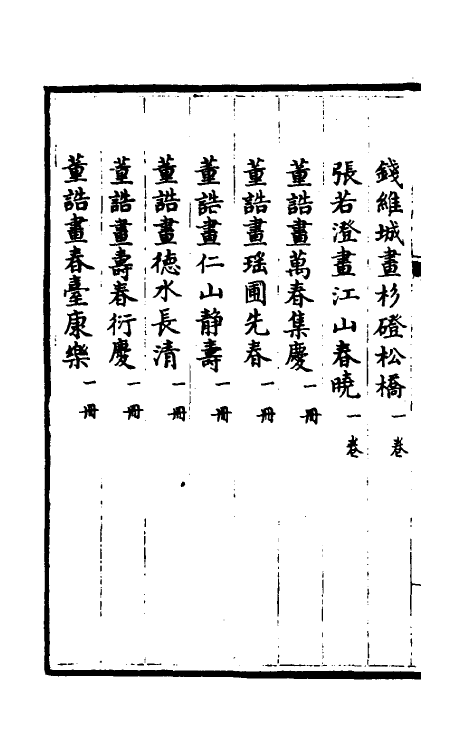 錢維城畫杉磴松橋一卷
張若澄畫江山春曉一卷
董誥畫萬春集慶一冊
董誥畫瑶圃先春一冊
董誥畫仁山靜壽一冊
董誥畫德水長清一冊
董誥畫壽春衍慶一冊
董誥畫春臺康樂一冊